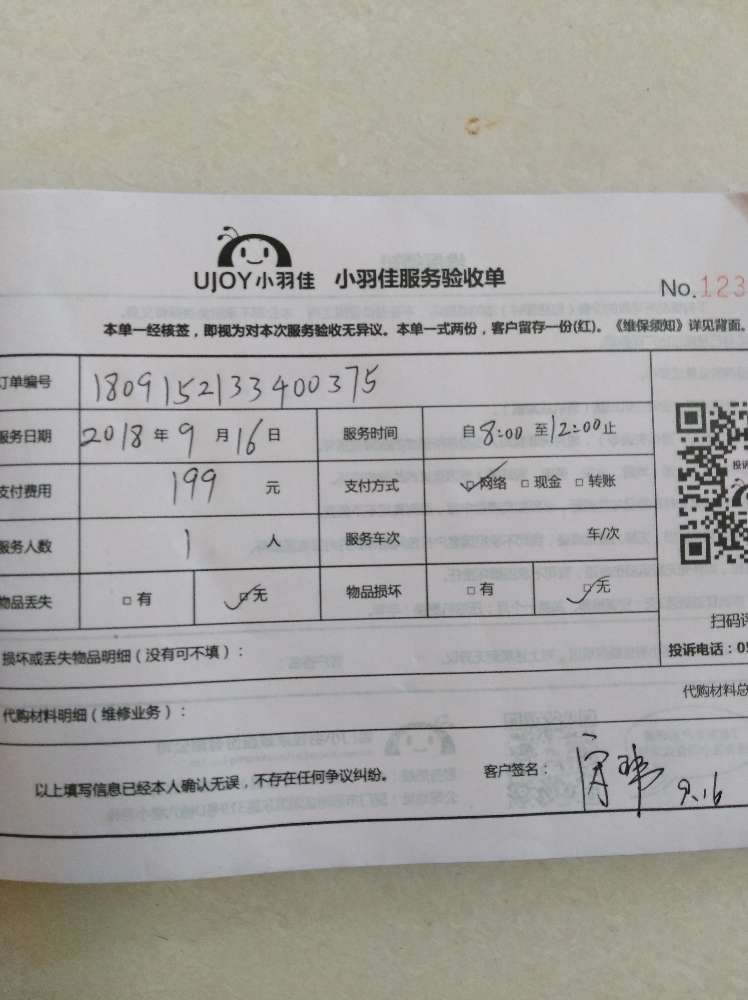 UJOY小羽佳 小羽佳服务验收单
No.123
本单一经核签，即视为对本次服务验收无异议。本单一式两份，客户留存一份(红)。《维保须知》详见背面。
订单编号 1809152133400375
服务日期 2018年9月16日 服务时间 自8:00至12:00止
支付费用 199元 支付方式 □网络 □现金 □转账
服务人数 1人 服务车次 车/次
物品丢失 □有 □无 物品损坏 □有 □无
投诉
扫码评
损坏或丢失物品明细（没有可不填）：
投诉电话：05
代购材料明细（维修业务）：
代购材料总
以上填写信息已经本人确认无误，不存在任何争议纠纷。 客户签名：
9.16